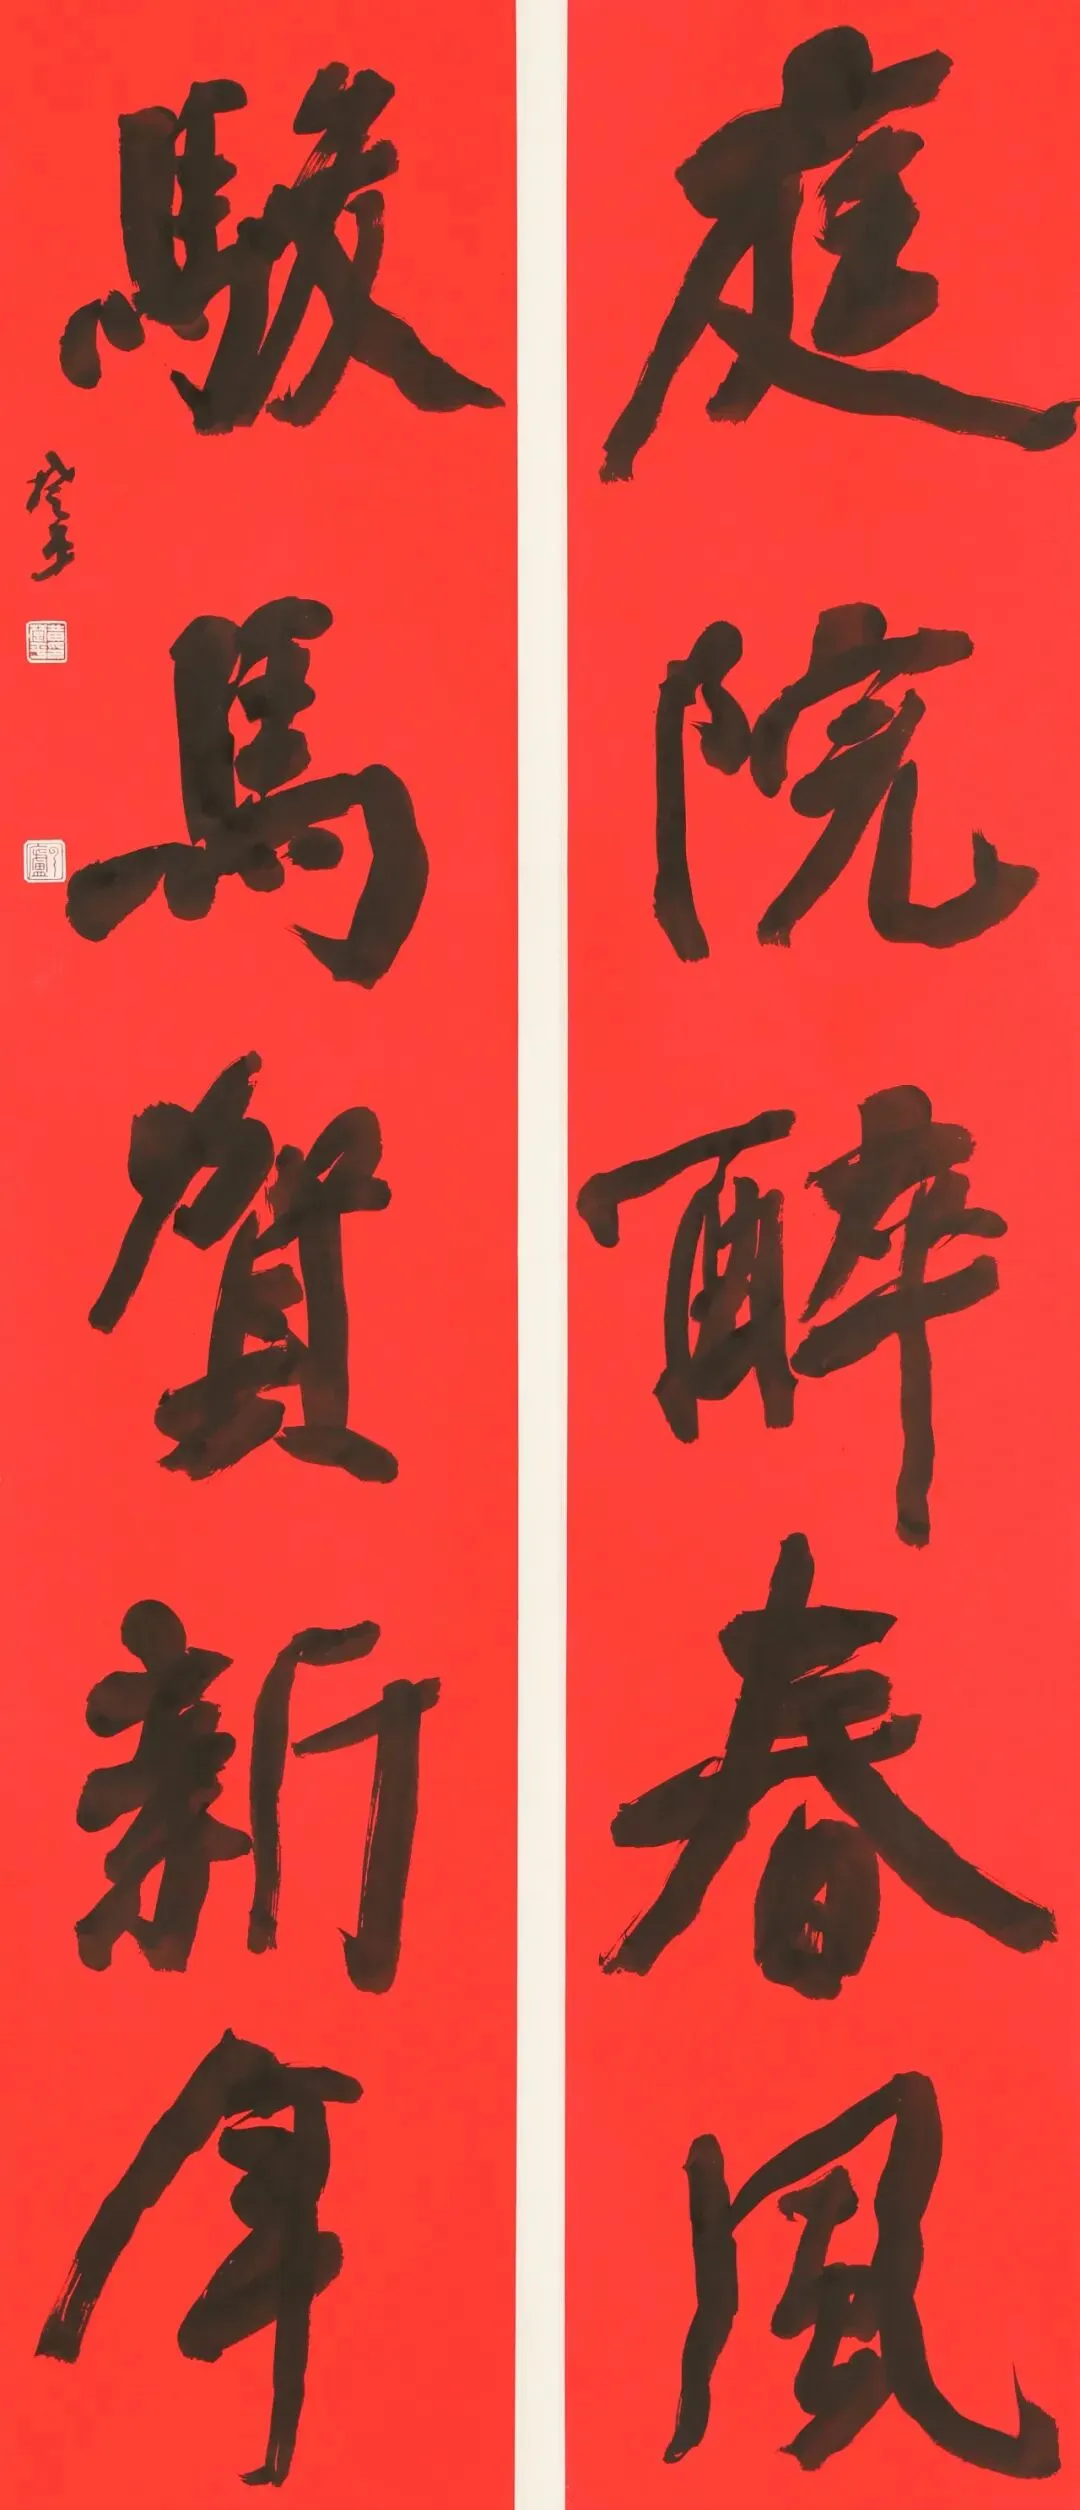 庭院醉春風
駿馬賀新年